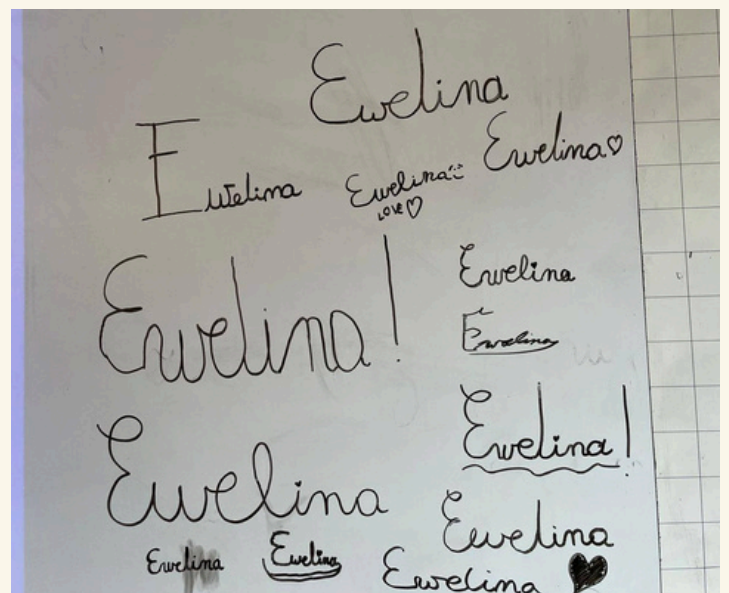 Ewelina
Ewelina
Ewelina
Ewelina ♡
LOVE ♡
Ewelina!
Ewelina
Ewelina
Ewelina!
Ewelina
Ewelina
Ewelina
Ewelina
Ewelina